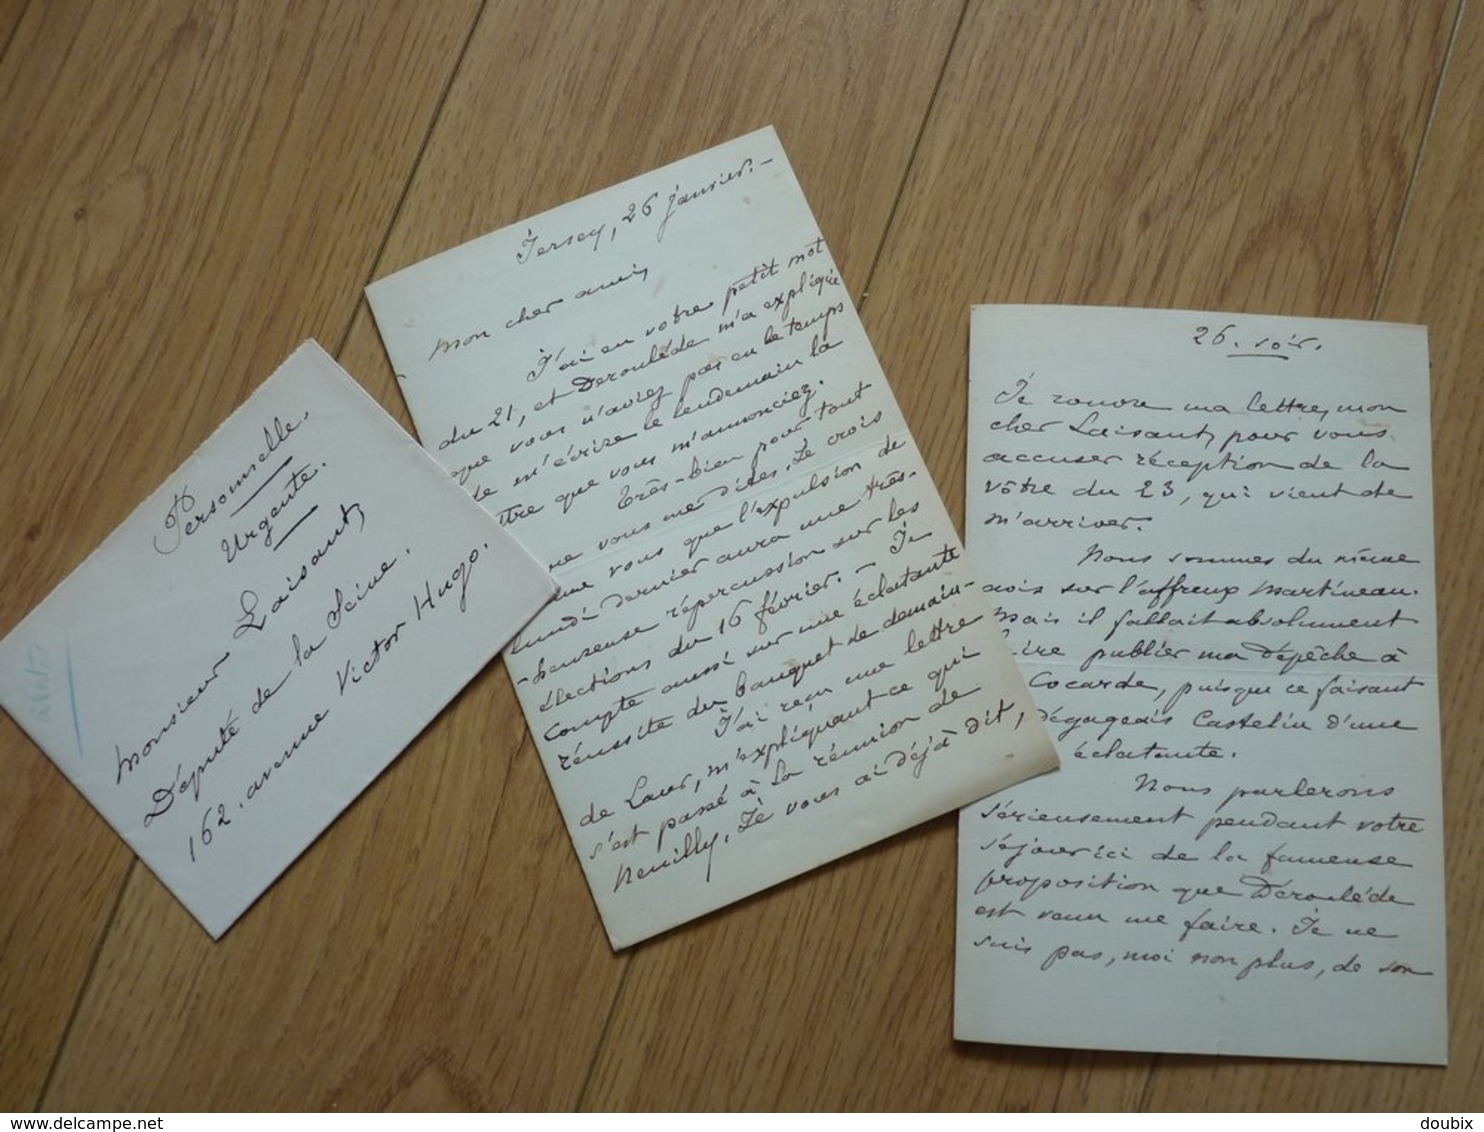 Personnelle.
Urgente.
Monsieur Laisant,
Député de la Seine.
162. avenue Victor Hugo.
Jersey, 26 janvier. -
Mon cher ami,
J'ai eu votre petit mot
du 21, et Deroulède m'a expliqué
que vous n'aviez pas eu le temps
de m'écrire le lendemain la
ttre que vous m'annonciez.
Très-bien pour tout
ue vous me dites. Je crois
vous que l'expulsion de
lundi dernier aura une très-
-heureuse répercussion sur les
élections du 16 février. - Je
compte aussi sur une éclatante
réussite du banquet de demain.
J'ai reçu une lettre
de Laur, m'expliquant ce qui
s'est passé à la réunion de
Neuilly. Je vous ai déjà dit,
26. soir.
Je rouvre ma lettre, mon
cher Laisant, pour vous
accuser réception de la
vôtre du 23, qui vient de
m'arriver.
Nous sommes du même
avis sur l'affreux Martineau.
Mais il fallait absolument
aire publier ma dépêche à
Cocarde, puisque ce faisant
dégageais Castelin d'une
éclatante.
Nous parlerons
sérieusement pendant votre
séjour ici de la fameuse
proposition que Déroulède
est venu me faire. Je ne
suis pas, moi non plus, de son
delcampe.net
doubix